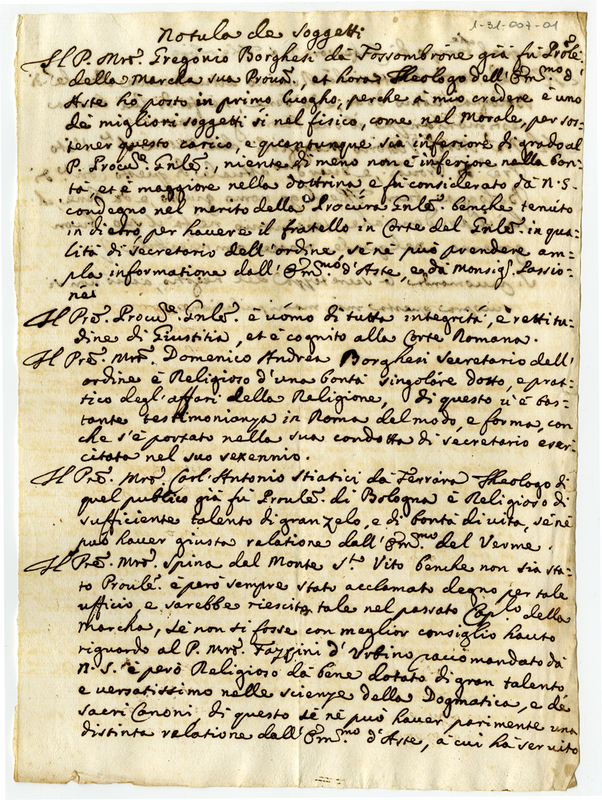 1-31-007-01
Notula de Soggetti
Il P. Mrõ. Gregorio Borghesi da Fossombrone già fù Proãle
della Marcha sua Prouã., et hora Theologo dell'Emmo. d'
Aste hò posto in primo luogho, perche a mio credere è uno
dei migliori soggetti si nel fisico, come nel Morale, per sos=
tener questo carico, e quantunque sia inferiore di grado al
P. Procure. Gnlẽ., niente di meno non è inferiore nella bon=
tà, et è maggiore nella dottrina, e fù considerato da N. S.
condegno nel merito della Procura Gnlẽ. benche tenuto
in dietro, per hauere il fratello in Corte del Gnlẽ. in qua=
lità di secretario dell'ordine, se nè può prendere am=
pla informatione dall'Emmo. d'Aste, e da Monsigr. Passio=
nei
Il Prẽ. Procure. Gnlẽ. è uomo di tutta integrità, e rettitu=
dine di Giustitia, et è cognito alla Corte Romana.
Il Prẽ. Mrõ. Domenico Andrea Borghesi secretario dell'
ordine è Religioso d'una bontà singolare dotto, e prat=
tico degl'affari della Religione, di questo u'è bas=
tante testimonianza in Roma del modo, e forma, con
che s'è portato nella sua condotta di secretario eser=
citata nel suo sexennio.
Il Prẽ. Mrõ. Carl'Antonio Stiatici da Ferrara Theologo di
quel publico già fù Proulẽ. di Bologna è Religioso di
sufficiente talento di gran zelo, e di bontà di vita, se nè
può hauer giusta relatione dall'Emmo. del Verme.
Il Prẽ. Mrõ. Spina del Monte Sto. Vito benche non sia sta=
to Proulẽ. è però sempre stato acclamato degno per tale
ufficio, e sarebbe riescito tale nel passato Caplo. della
Marcha, se non si fosse con meglior consiglio hauto
riguardo al P. Mrõ. Fazzini d'Urbino raccomandato da
N. S. è però Religioso da bene dotato di gran talento
e uersatissimo nelle scienze della Dogmatica, e dè
sacri Canoni di questo se nè può hauer parimente una
distinta relatione dall'Emmo. d'Aste, a cui hà seruito